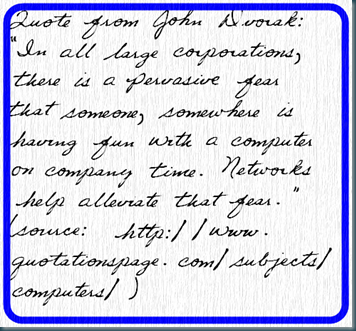 Quote from John Dvorak:
"In all large corporations,
there is a pervasive fear
that someone, somewhere is
having fun with a computer
on company time. Networks
help alleviate that fear."
(source: http://www.
quotationspage.com/subjects/
computers/ )